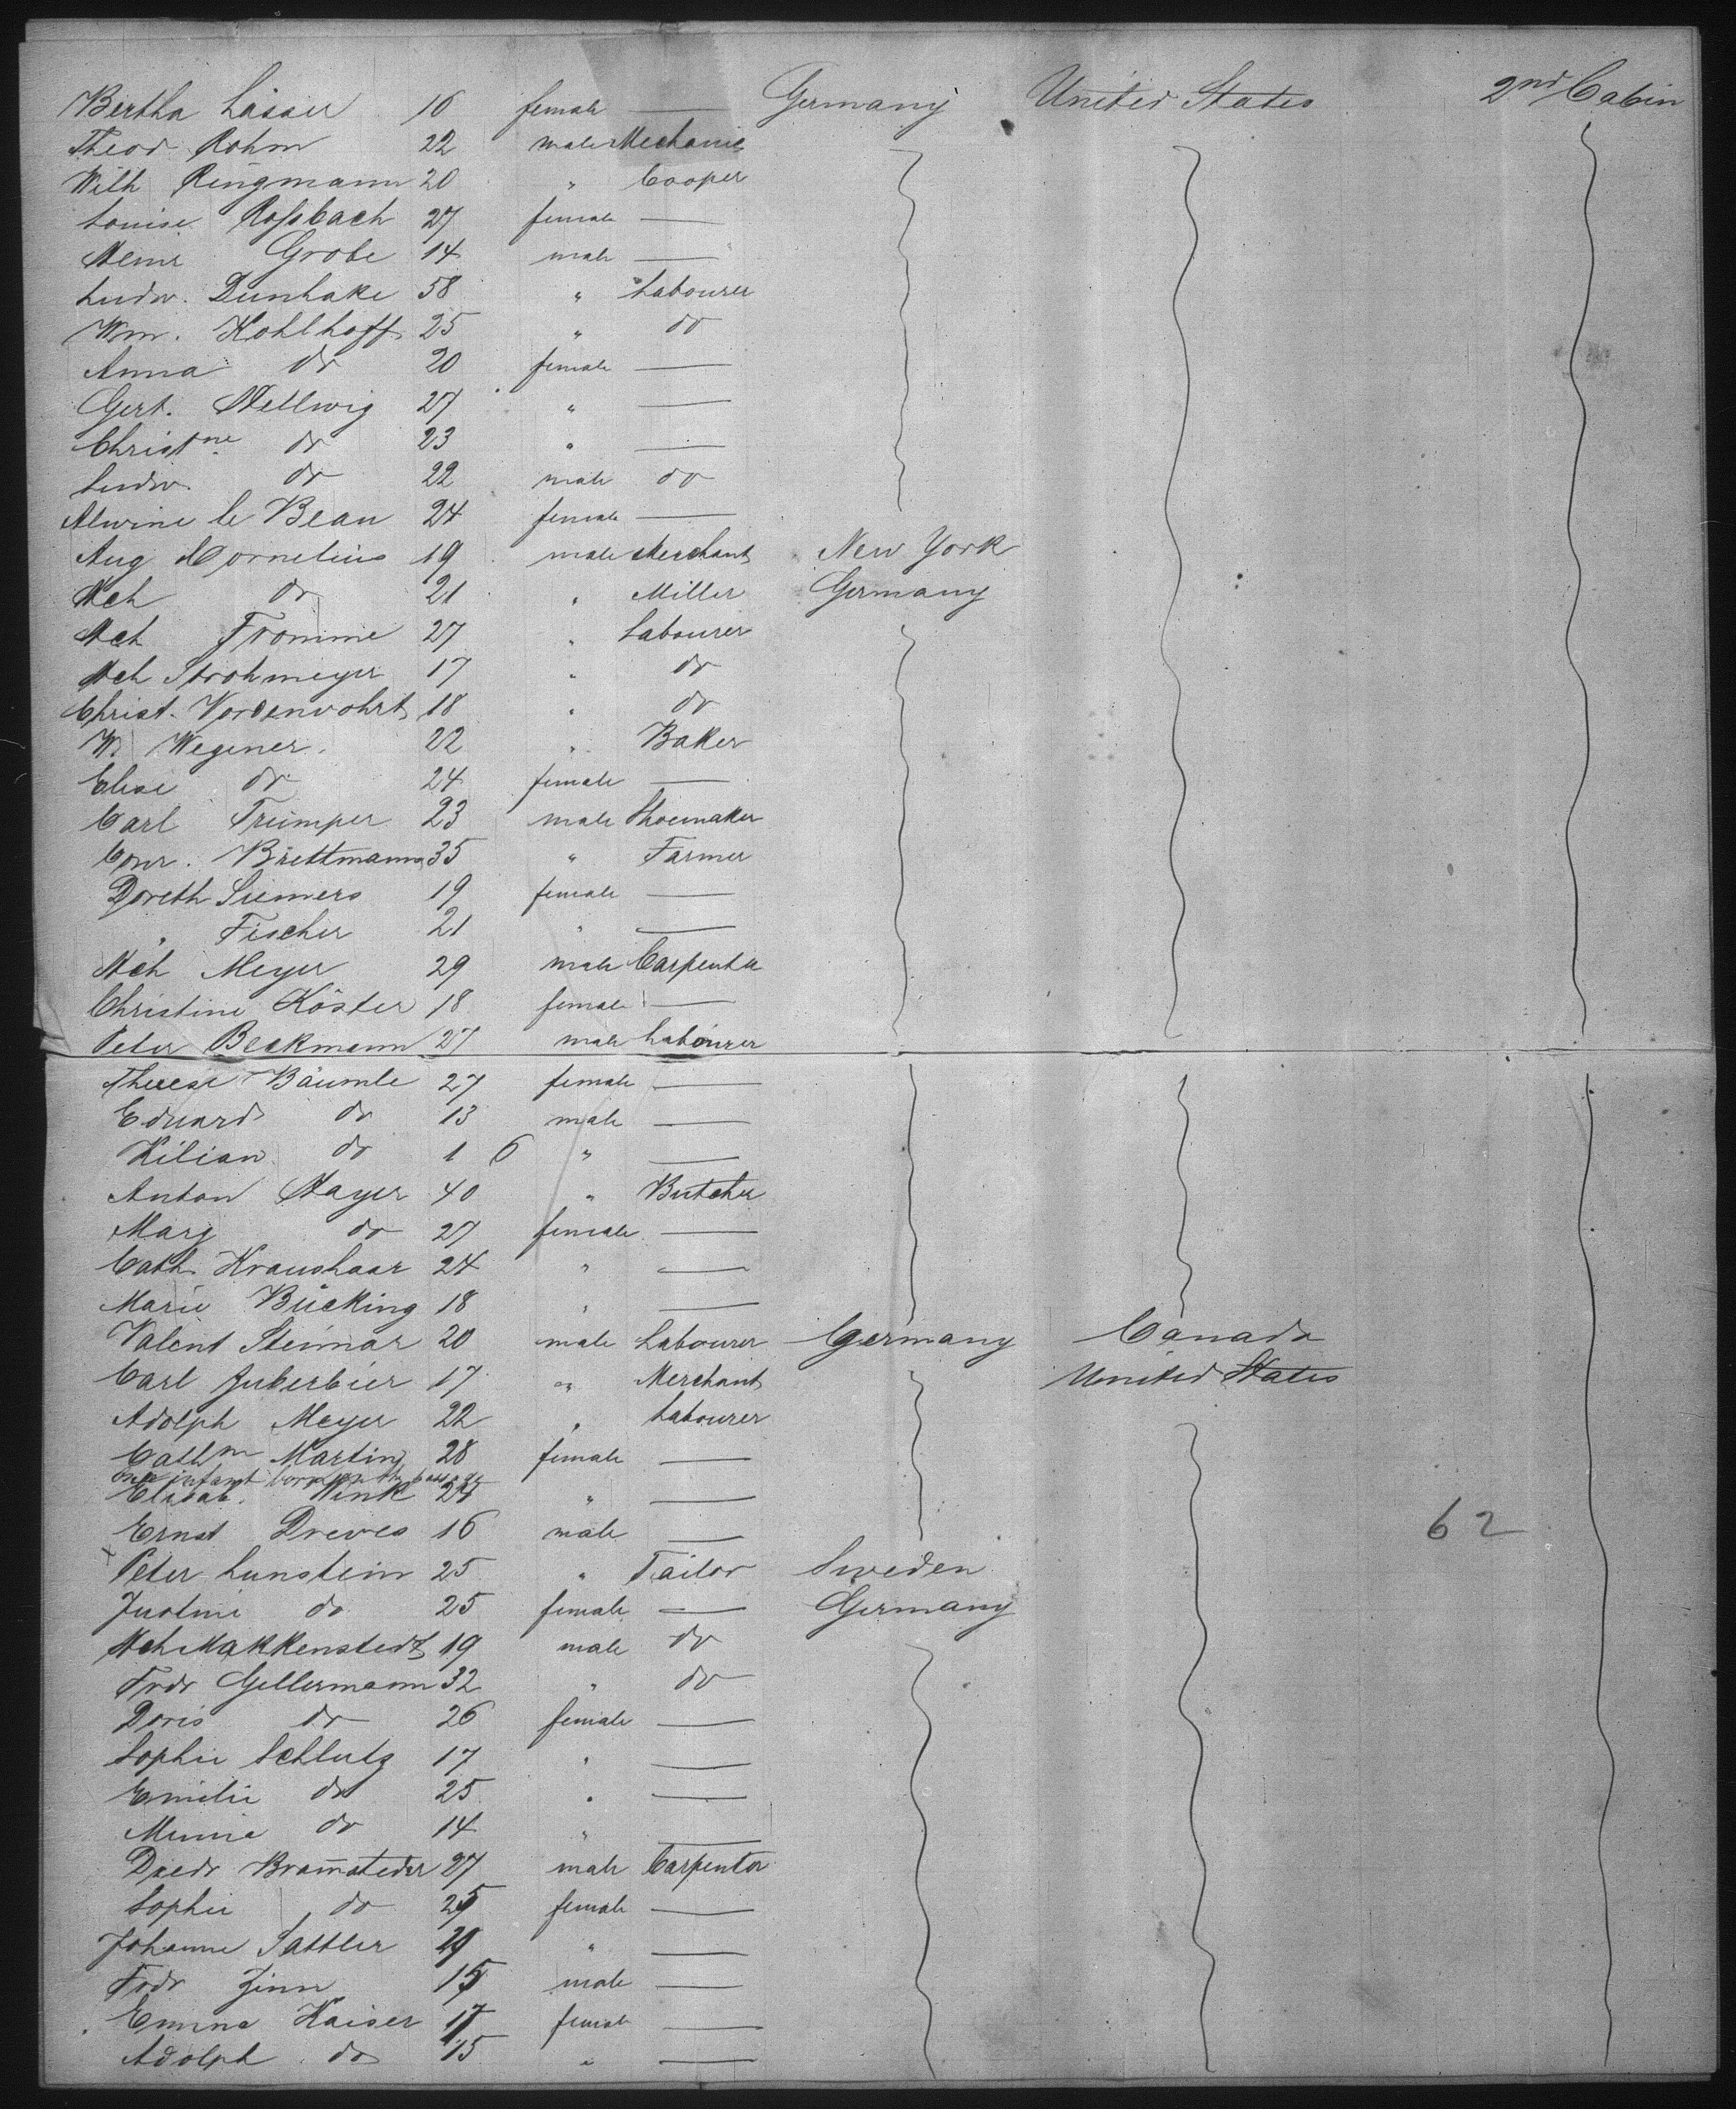 Bertha Lässer 16 female — Germany United States 2nd Cabin
Theod. Rohm 22 male Mechanic
Wilh Ringmann 20 " Cooper
Louise Roſsbach 27 female —
Heinr Grobe 14 male —
Ludw. Dunhake 58 " Labourer
Wm. Kohlhoff 25 " do
Anna do 20 female —
Gert. Hellwig 27 " —
Christne do 23 " —
Ludw. do 22 male do
Alwine le Beau 24 female —
Aug Cornelius 19 male Merchant New York
Hch do 21 " Miller Germany
Hch Fromme 27 " Labourer
Hch Strohmeyer 17 " do
Christ. Vordenwohrt 18 " do
W. Wegener. 22 " Baker
Elise do 24 female —
Carl Trümper 23 male Shoemaker
Conr. Brettmann 35 " Farmer
Doreth Siemers 19 female —
" Fischer 21 " —
Hch Meyer 29 male Carpenter
Christine Köster 18 female —
Peter Beckmann 27 male Labourer
Therese Bäumle 27 female —
Eduard do 13 male —
Kilian do 1 6 " —
Anton Hayer 40 " Butcher
Marg do 27 female —
Cath. Kraushaar 24 " —
Marie Bücking 18 " —
Valent Steimar 20 male Labourer Germany Canada
Carl Juberbier 17 " Merchant United States
Adolph Meyer 22 " Labourer
Cathm Martin 28 female —
One infant born on the passage
Elisab. Wink 24 " —
Ernst Dreves 16 male — 62
x Peter Lunstein 25 " Tailor Sweden
Justine do 25 female — Germany
Hch Makkenstedt 19 male do
Frdr Gellermann 32 " do
Doris do 26 female —
Sophie Schlutz 17 " —
Emilie do 25 " —
Minna do 14 " —
Diedr Bramsteder 27 male Carpenter
Sophie do 25 female —
Johanne Sattler " —
Frdr Zinn 15 male —
Emma Kaiser 17 female —
Adolph do 15 " —